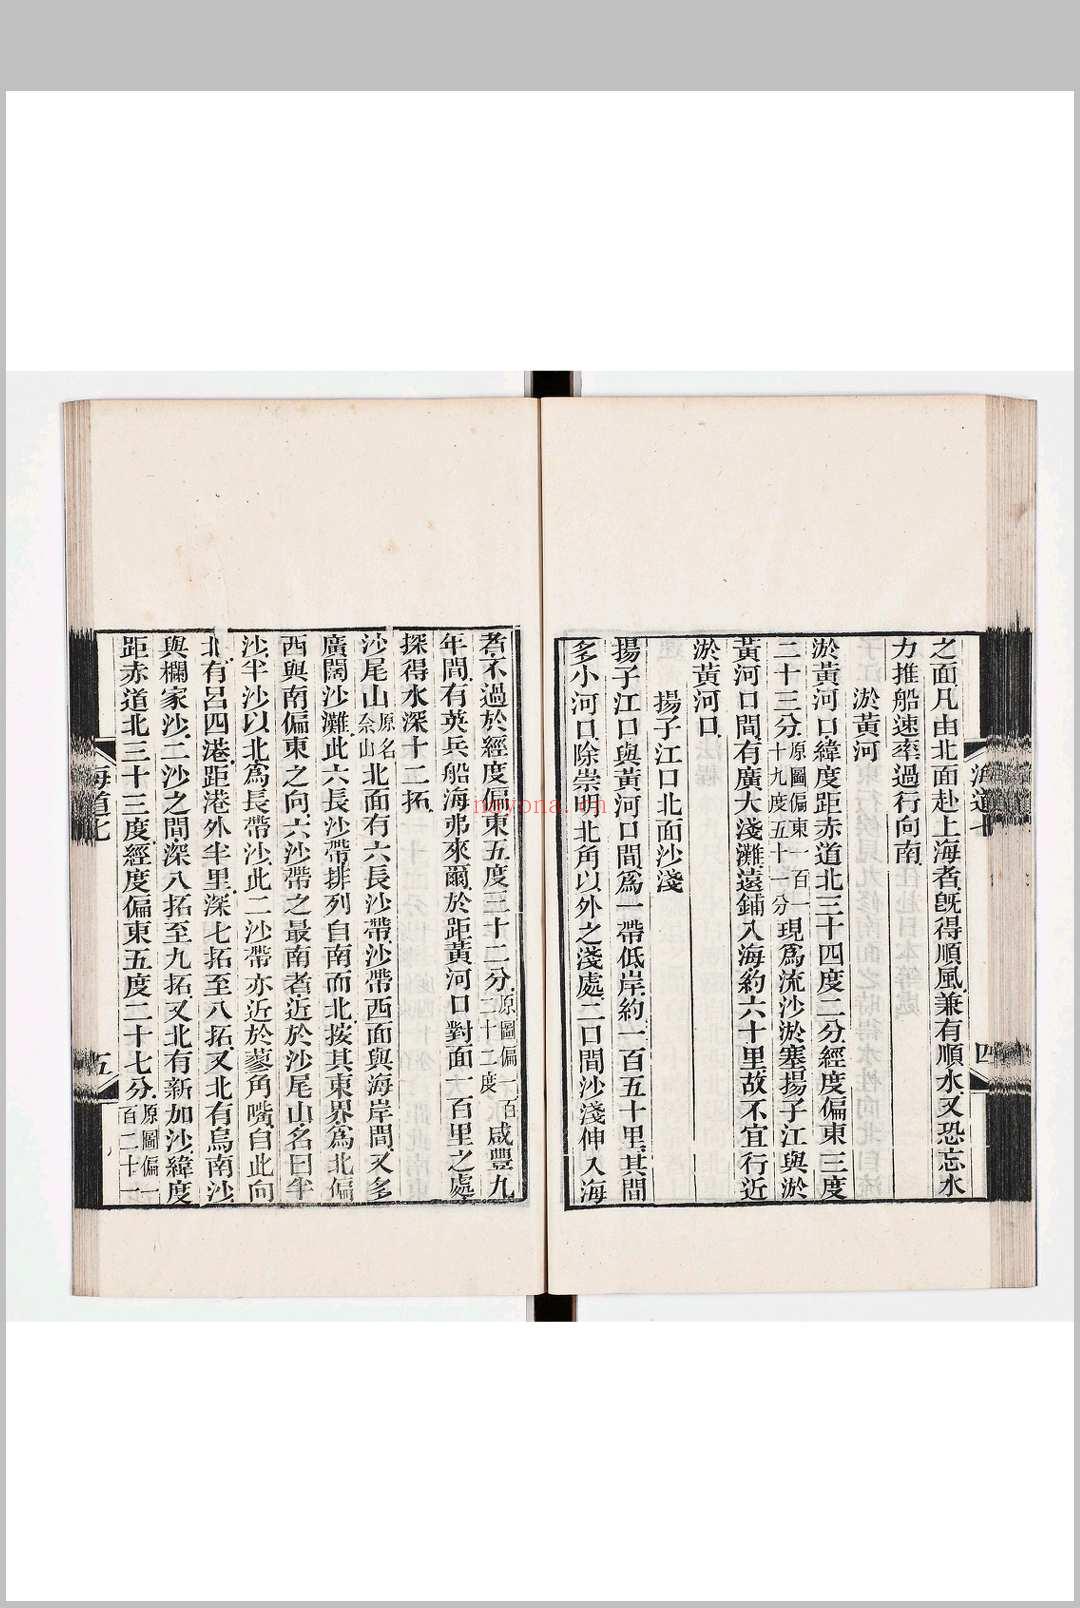 之面凡由北面赴上海者旣得順風兼有順水又恐忘水
力推船速率過行向南
淤黃河
淤黃河口緯度距赤道北三十四度二分經度偏東三度
二十三分原圖偏東一百一十九度五十一分現爲流沙淤塞揚子江與淤
黃河口間有廣大淺灘遠鋪入海約六十里故不宜行近
淤黃河口
揚子江口北面沙淺
揚子江口與黃河口間爲一帶低岸約一百五十里其間
多小河口除崇明北角以外之淺處二口間沙淺伸入海
海道七
四
者不過於經度偏東五度三十二分原圖偏一百二十二度咸豐九
年間有英兵船海弗來爾於距黃河口對面一百里之處
探得水深十二拓
沙尾山原名佘山北面有六長沙帶沙帶西面與海岸間又多
廣闊沙灘此六長沙帶排列自南而北按其東界爲北偏
西與南偏東之向六沙帶之最南者近於沙尾山名曰半
沙半沙以北爲長帶沙此二沙帶亦近於蓼角嘴自此向
北有呂四港距港外半里深七拓至八拓又北有烏南沙
與欄家沙二沙之間深八拓至九拓又北有新加沙緯度
距赤道北三十三度經度偏東五度二十七分原圖偏一百二十一
海道七
五
nayona.cn